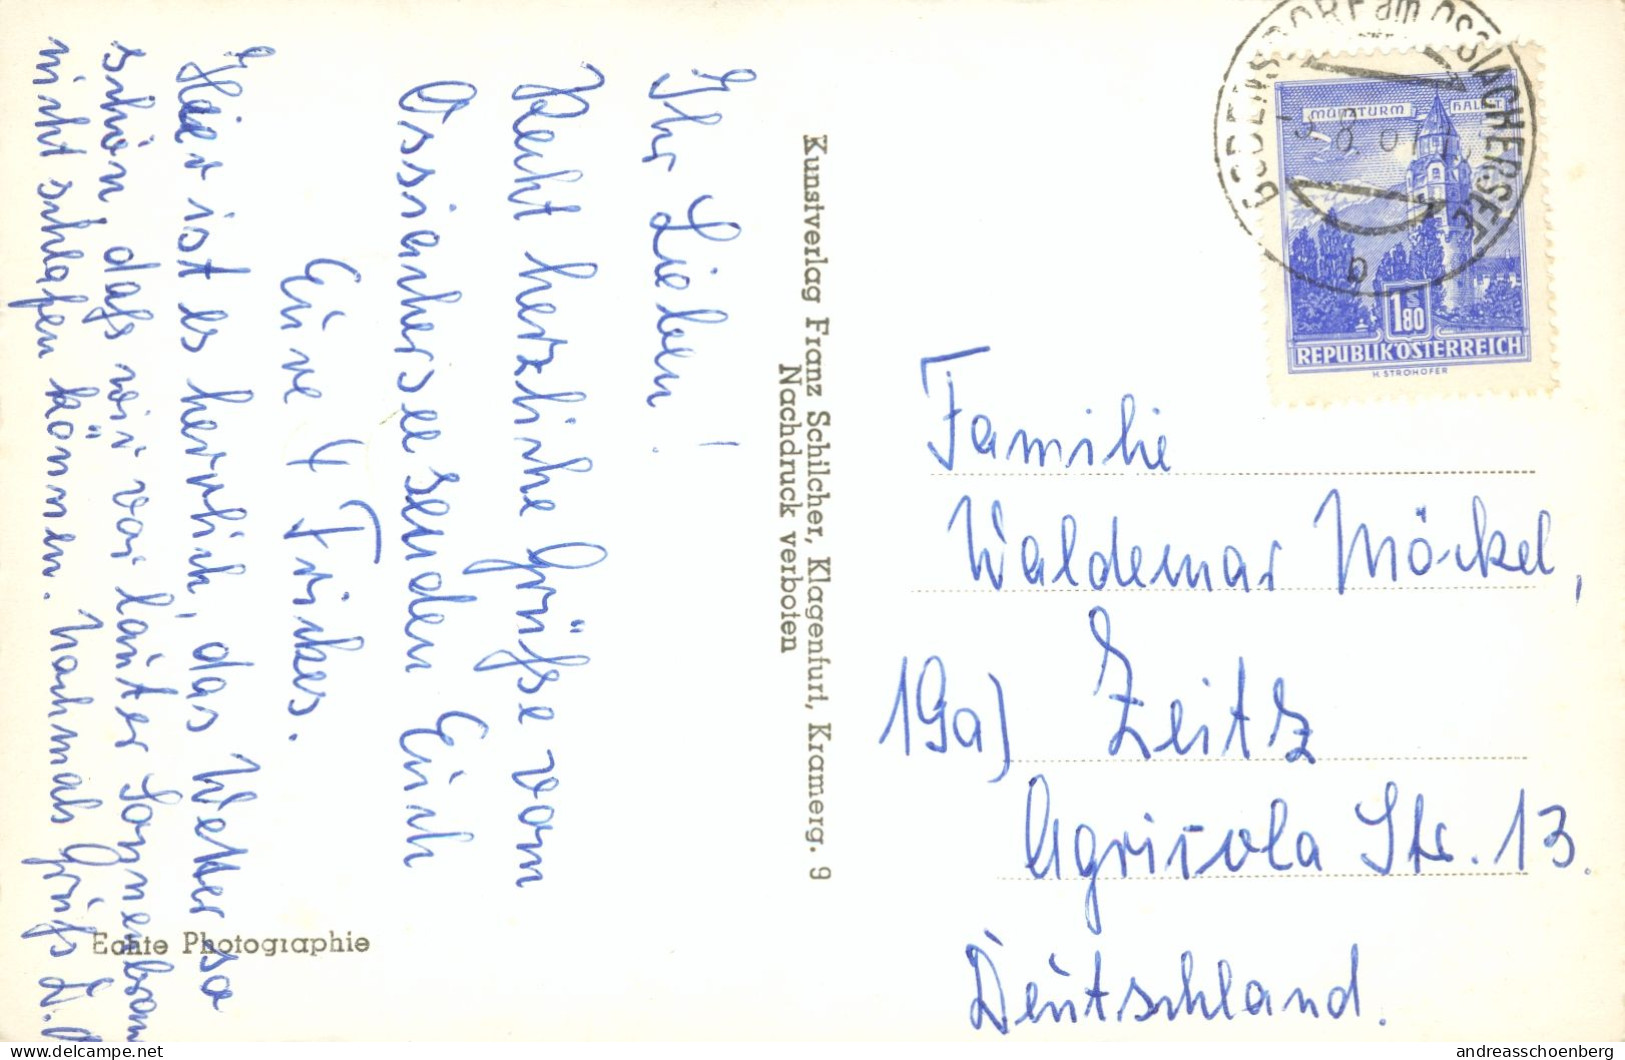 Ihr Lieben!
Recht herzliche Grüße vom
Ossiachersee senden Euch
Eure 4 Frickes.
Hier ist es herrlich, das Wetter so
schön, daß wir vor lauter Sonnenbrand
nicht schlafen können. Nochmals Gruß
Kunstverlag Franz Schilcher, Klagenfurt, Kramerg. 9
Nachdruck verboten
Echte Photographie
BODENSDORF am OSSIACHERSEE
a
MÜNZTURM HALL i.T.
S
1.80
REPUBLIK ÖSTERREICH
H. STROHOFER
Familie
Waldemar Möckel,
19a) Zeitz
Agricola Str. 13.
Deutschland.
delcampe.net
andreasschoenberg